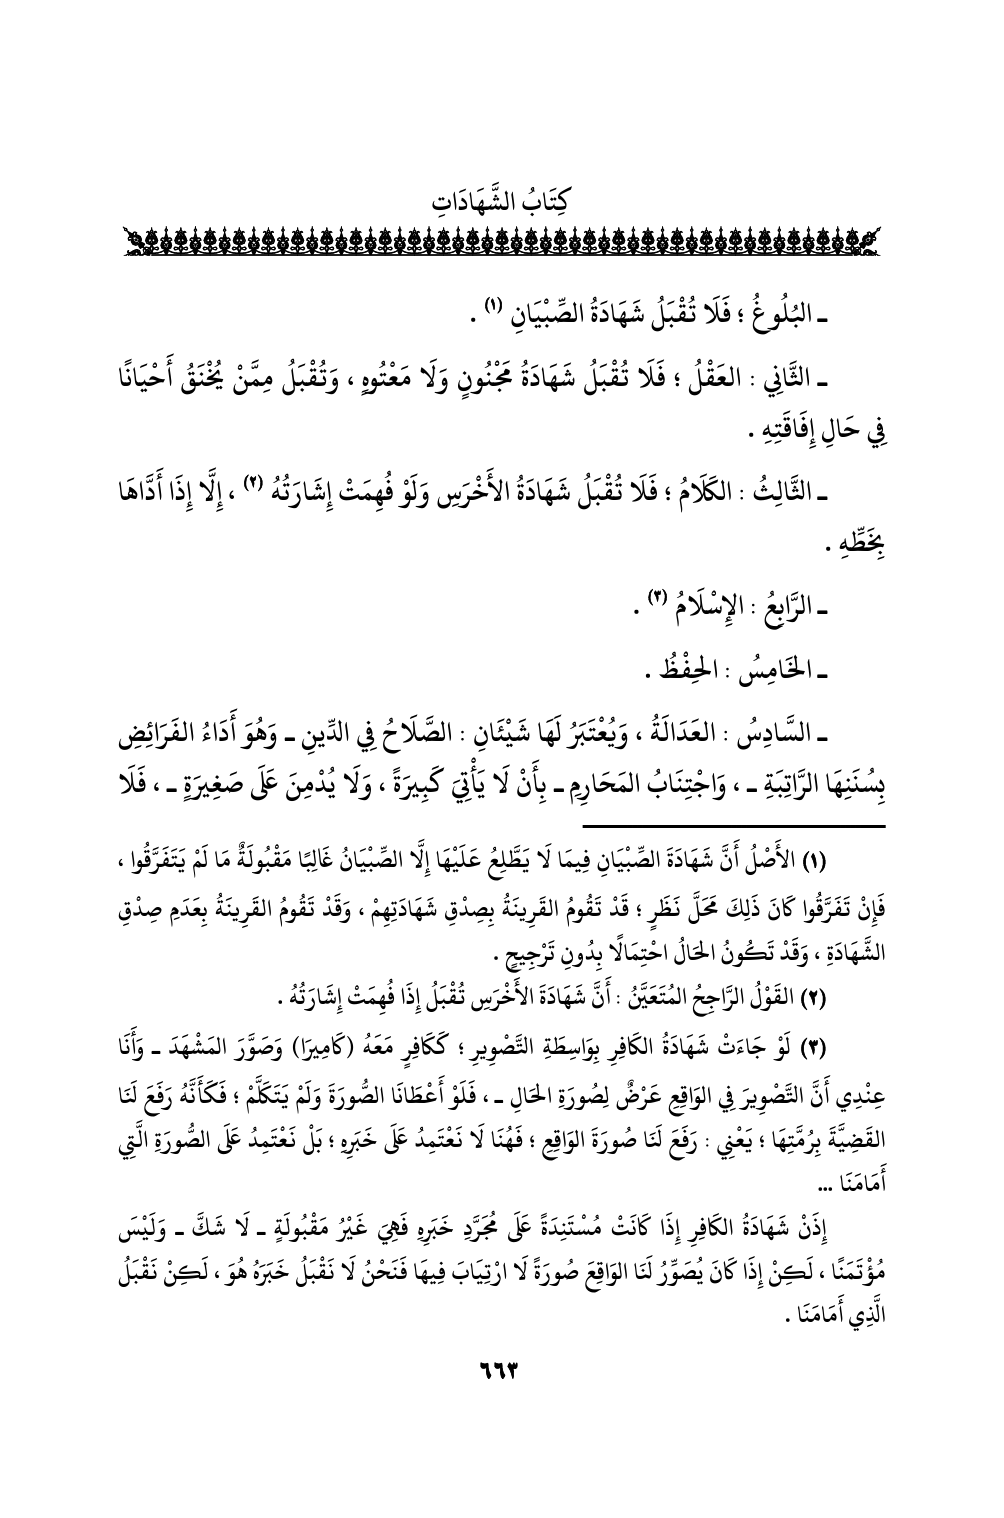 كِتَابُ الشَّهَادَاتِ
ـ البُلُوغُ ؛ فَلَا تُقْبَلُ شَهَادَةُ الصِّبْيَانِ (١) .
ـ الثَّانِي : العَقْلُ ؛ فَلَا تُقْبَلُ شَهَادَةُ مَجْنُونٍ وَلَا مَعْتُوهٍ ، وَتُقْبَلُ مِمَّنْ يُخْنَقُ أَحْيَانًا
فِي حَالِ إِفَاقَتِهِ .
ـ الثَّالِثُ : الكَلَامُ ؛ فَلَا تُقْبَلُ شَهَادَةُ الأَخْرَسِ وَلَوْ فُهِمَتْ إِشَارَتُهُ (٢) ، إِلَّا إِذَا أَدَّاهَا
بِخَطِّهِ .
ـ الرَّابِعُ : الإِسْلَامُ (٣) .
ـ الخَامِسُ : الحِفْظُ .
ـ السَّادِسُ : العَدَالَةُ ، وَيُعْتَبَرُ لَهَا شَيْئَانِ : الصَّلَاحُ فِي الدِّينِ ـ وَهُوَ أَدَاءُ الفَرَائِضِ
بِسُنَنِهَا الرَّاتِبَةِ ـ ، وَاجْتِنَابُ المَحَارِمِ ـ بِأَنْ لَا يَأْتِيَ كَبِيرَةً ، وَلَا يُدْمِنَ عَلَى صَغِيرَةٍ ـ ، فَلَا
(١) الأَصْلُ أَنَّ شَهَادَةَ الصِّبْيَانِ فِيمَا لَا يَطَّلِعُ عَلَيْهَا إِلَّا الصِّبْيَانُ غَالِبًا مَقْبُولَةٌ مَا لَمْ يَتَفَرَّقُوا ،
فَإِنْ تَفَرَّقُوا كَانَ ذَلِكَ مَحَلَّ نَظَرٍ ؛ قَدْ تَقُومُ القَرِينَةُ بِصِدْقِ شَهَادَتِهِمْ ، وَقَدْ تَقُومُ القَرِينَةُ بِعَدَمِ صِدْقِ
الشَّهَادَةِ ، وَقَدْ تَكُونُ الحَالُ احْتِمَالًا بِدُونِ تَرْجِيحٍ .
(٢) القَوْلُ الرَّاجِحُ المُتَعَيَّنُ : أَنَّ شَهَادَةَ الأَخْرَسِ تُقْبَلُ إِذَا فُهِمَتْ إِشَارَتُهُ .
(٣) لَوْ جَاءَتْ شَهَادَةُ الكَافِرِ بِوَاسِطَةِ التَّصْوِيرِ ؛ كَكَافِرٍ مَعَهُ (كَامِيرَا) وَصَوَّرَ المَشْهَدَ ـ وَأَنَا
عِنْدِي أَنَّ التَّصْوِيرَ فِي الوَاقِعِ عَرْضٌ لِصُورَةِ الحَالِ ـ ، فَلَوْ أَعْطَانَا الصُّورَةَ وَلَمْ يَتَكَلَّمْ ؛ فَكَأَنَّهُ رَفَعَ لَنَا
القَضِيَّةَ بِرُمَّتِهَا ؛ يَعْنِي : رَفَعَ لَنَا صُورَةَ الوَاقِعِ ؛ فَهُنَا لَا نَعْتَمِدُ عَلَى خَبَرِهِ ؛ بَلْ نَعْتَمِدُ عَلَى الصُّورَةِ الَّتِي
أَمَامَنَا ...
إِذَنْ شَهَادَةُ الكَافِرِ إِذَا كَانَتْ مُسْتَنِدَةً عَلَى مُجَرَّدِ خَبَرِهِ فَهِيَ غَيْرُ مَقْبُولَةٍ ـ لَا شَكَّ ـ وَلَيْسَ
مُؤْتَمَنًا ، لَكِنْ إِذَا كَانَ يُصَوِّرُ لَنَا الوَاقِعَ صُورَةً لَا ارْتِيَابَ فِيهَا فَنَحْنُ لَا نَقْبَلُ خَبَرَهُ هُوَ ، لَكِنْ نَقْبَلُ
الَّذِي أَمَامَنَا .
٦٦٣